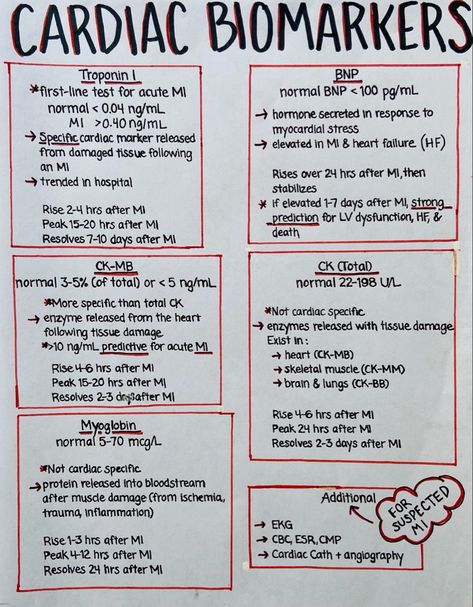 CARDIAC BIOMARKERS
Troponin I
*first-line test for acute MI
normal < 0.04 ng/mL
MI >0.40 ng/mL
→ Specific cardiac marker released
from damaged tissue following
an MI
→ trended in hospital
Rise 2-4 hrs after MI
Peak 15-20 hrs after MI
Resolves 7-10 days after MI
BNP
normal BNP < 100 pg/mL
→ hormone secreted in response to
myocardial stress
→ elevated in MI & heart failure (HF)
Rises over 24 hrs after MI, then
stabilizes
* if elevated 1-7 days after MI, strong
prediction for LV dysfunction, HF, &
death
CK-MB
normal 3-5% (of total) or < 5 ng/mL
*More specific than total CK
→ enzyme released from the heart
following tissue damage
*>10 ng/mL predictive for acute MI
Rise 4-6 hrs after MI
Peak 15-20 hrs after MI
Resolves 2-3 days after MI
CK (Total)
normal 22-198 U/L
*Not cardiac specific
→ enzymes released with tissue damage
Exist in:
→ heart (CK-MB)
→ skeletal muscle (CK-MM)
→ brain & lungs (CK-BB)
Rise 4-6 hrs after MI
Peak 24 hrs after MI
Resolves 2-3 days after MI
Myoglobin
normal 5-70 mcg/L
*Not cardiac specific
→ protein released into bloodstream
after muscle damage (from ischemia,
trauma, inflammation)
Rise 1-3 hrs after MI
Peak 4-12 hrs after MI
Resolves 24 hrs after MI
Additional
→ EKG
→ CBC, ESR, CMP
→ Cardiac Cath + angiography
FOR
SUSPECTED
MI